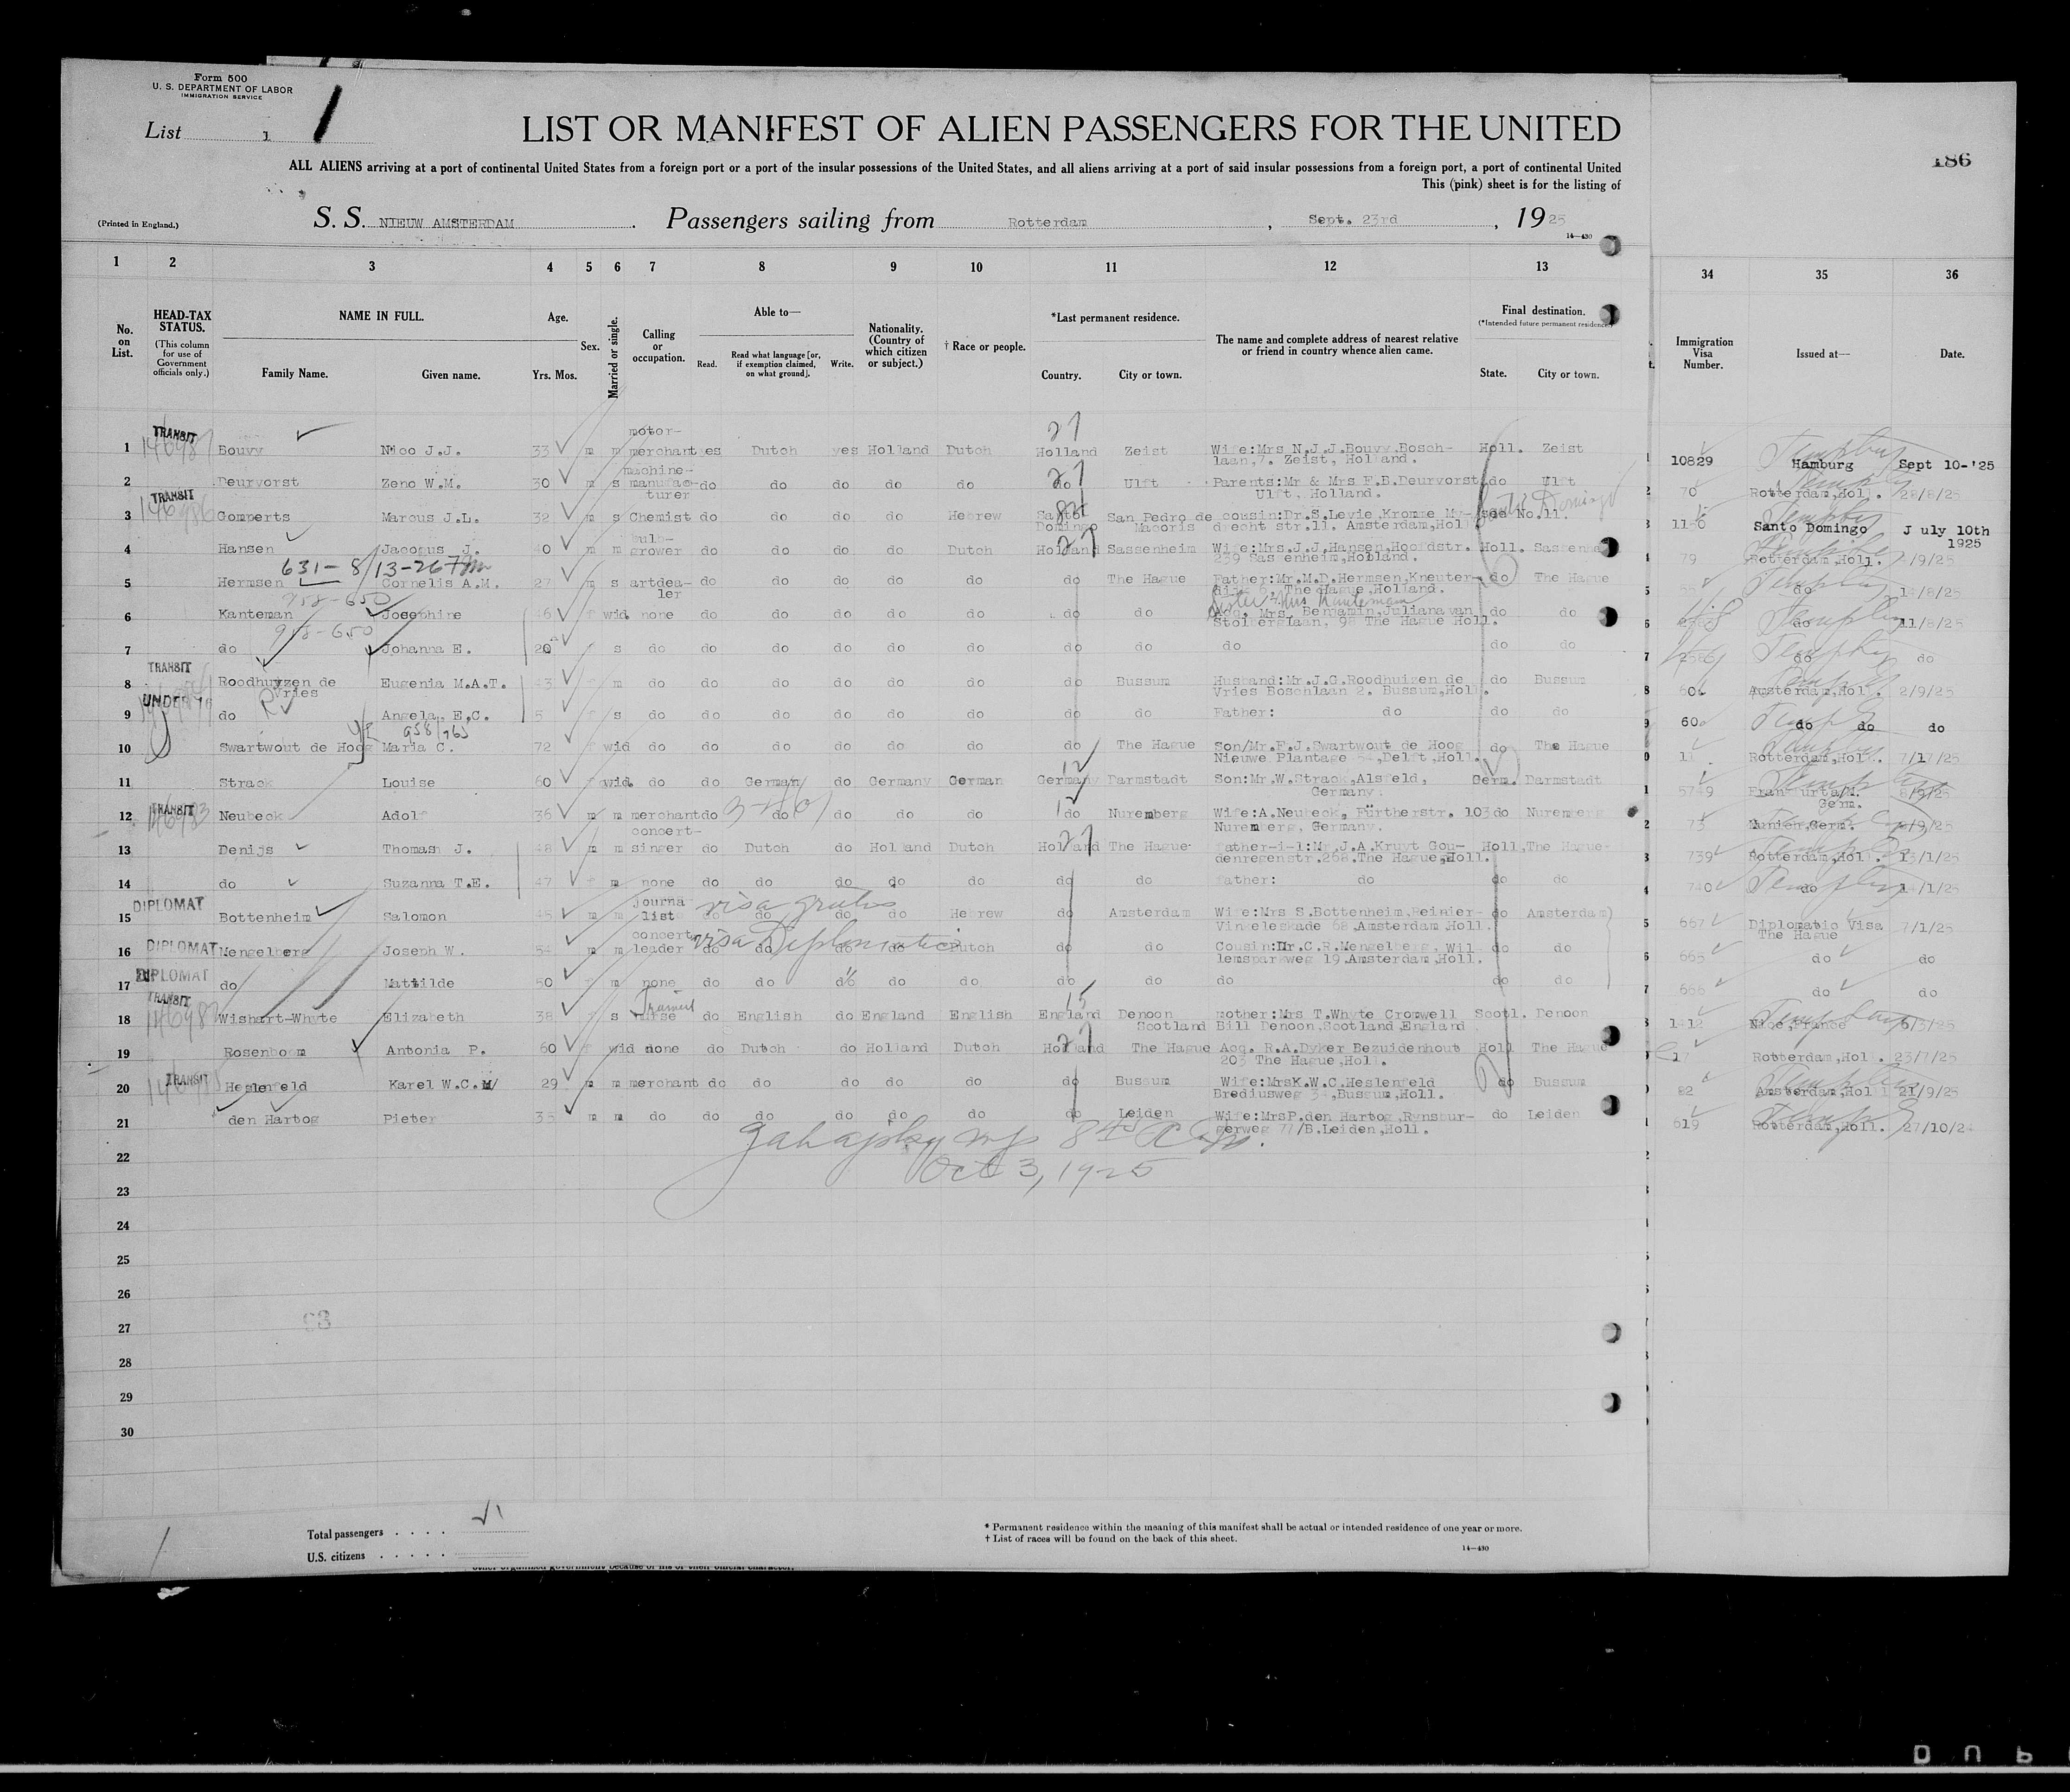 Form 500
U. S. DEPARTMENT OF LABOR
IMMIGRATION SERVICE
List 1
LIST OR MANIFEST OF ALIEN PASSENGERS FOR THE UNITED
186
ALL ALIENS arriving at a port of continental United States from a foreign port or a port of the insular possessions of the United States, and all aliens arriving at a port of said insular possessions from a foreign port, a port of continental United
This (pink) sheet is for the listing of
(Printed in England.)
S. S. NIEUW AMSTERDAM. Passengers sailing from Rotterdam, Sept. 23rd, 1925
14—430
1 2 3 4 5 6 7 8 9 10 11 12 13 34 35 36
No. on List.
HEAD-TAX STATUS.
(This column for use of Government officials only.)
NAME IN FULL.
Family Name. Given name.
Age.
Yrs. Mos.
Sex.
Married or single.
Calling or occupation.
Able to—
Read.
Read what language [or, if exemption claimed, on what ground].
Write.
Nationality. (Country of which citizen or subject.)
† Race or people.
*Last permanent residence.
Country. City or town.
The name and complete address of nearest relative or friend in country whence alien came.
Final destination.
(*Intended future permanent residence.)
State. City or town.
Immigration Visa Number.
Issued at—
Date.
TRANSIT 27
1 Bouvy Nico J.J. 33 m m motor-merchant yes Dutch yes Holland Dutch Holland Zeist Wife:Mrs N.J.J.Bouvy.Bosch-laan,7. Zeist, Holland. Holl. Zeist 10829 Hamburg Sept 10-'25
2 Deurvorst Zeno W.M. 30 m s machine-manufac-turer do do do do do do Ulft Parents:Mr & Mrs F.B.Deurvorst Ulft, Holland. do Ulft 70 Rotterdam,Holl. 28/8/25
TRANSIT
3 Gomperts Marcus J.L. 32 m s Chemist do do do do Hebrew Santo Domingo San Pedro de Macoris cousin:Dr.S.Levie,Kromme My-drecht str.11. Amsterdam,Holl see No.11. Santo Domingo Santo Domingo July 10th 1925
4 Hansen Jacobus J. 40 m m bulb-grower do do do do Dutch Holland Sassenheim Wife:Mrs.J.J.Hansen,Hoofdstr. 239 Sassenheim,Holland. Holl. Sassenheim 79 Rotterdam,Holl. /9/25
631 - 8/13-26
5 Hermsen Cornelis A.M. 27 m s artdea-ler do do do do do do The Hague Father:Mr.M.D.Hermsen,Kneuter-dijk, The Hague,Holland. do The Hague do 14/8/25
958-650
6 Kanteman Josephine 46 f wid. none do do do do do do do Acq. Mrs. Benjamin,Juliana van Stolberglaan, 98 The Hague Holl. do do do 11/8/25
958-650
7 do Johanna E. 20 f s do do do do do do do do do do do do do
TRANSIT
8 Roodhuyzen de Vries Eugenia M.A.T. 43 f m do do do do do do do Bussum Husband:Mr.J.G.Roodhuizen de Vries Boschlaan 2. Bussum,Holl. do Bussum 60 Amsterdam,Holl. 2/9/25
UNDER 16
9 do Angela E.C. 5 f s do do do do do do do do Father: do do do 60 do do do
10 Swartwout de Hoog Maria C. 72 f wid do do do do do do do The Hague Son/Mr.F.J.Swartwout de Hoog Nieuwe Plantage 54,Delft,Holl. do The Hague Rotterdam,Hol. 7/17/25
11 Strack Louise 60 f wid. do do German do Germany German Germany Darmstadt Son:Mr.W.Strack,Alsfeld, Germany. Germ. Darmstadt 5749 Frankfurta/M. Germ.
TRANSIT
12 Neubeck Adolf 36 m m merchant do do do do do do Nuremberg Wife:A.Neubeck, Fürtherstr. 103 Nuremberg, Germany. do Nuremberg 73 Munich,Germ. /9/25
13 Denijs Thomas J. 48 m m concert-singer do Dutch do Holland Dutch Holland The Hague Father-i-l:Mr.J.A.Kruyt Gou-denregenstr.268.The Hague,Holl. Holl. The Hague 739 Rotterdam,Holl. 13/1/25
14 do Suzanna T.E. 47 f m none do do do do do do do father: do do do 740 do /1/25
DIPLOMAT visa gratis
15 Bottenheim Salomon 45 m m journa list do do do do Hebrew do Amsterdam Wife:Mrs S.Bottenheim,Reinier-Vinkeleskade 68,Amsterdam,Holl. do Amsterdam 667 Diplomatic Visa The Hague 7/1/25
DIPLOMAT visa Diplomatic
16 Mengelberg Joseph W. 54 m m concert leader do do do do Dutch do do Cousin:Dr.C.R.Mengelberg, Wil lemsparkweg 19,Amsterdam,Holl. do do 665 do do
DIPLOMAT
17 do Mathilde 50 f m none do do do do do do do do do do 666 do do
TRANSIT
18 Wishart-Whyte Elizabeth 38 f s Trained nurse do English do England English England Denoon Scotland mother:Mrs T.Whyte Cromwell Bill Denoon,Scotland,England Scotl. Denoon 1412 Nice,France
19 Rosenboom Antonia P. 60 f wid none do Dutch do Holland Dutch Holland The Hague Acq. R.A.Dyker Bezuidenhout 203 The Hague,Holl. Holl The Hague 17 Rotterdam,Hol. 23/7/25
TRANSIT
20 Heslenfeld Karel W.C.M 29 m m merchant do do do do do do Bussum Wife:MrsK.W.C.Heslenfeld Brediusweg 34,Bussum,Holl. do Bussum 82 Amsterdam,Hol 21/9/25
21 den Hartog Pieter 35 m m do do do do do do do Leiden Wife:MrsP.den Hartog,Rynsbur-gerweg 77/B.Leiden,Holl. do Leiden 619 Rotterdam,Holl. 27/10/24
22
Oct 3, 1925
23
24
25
26
27
28
29
30
Total passengers . . . .
U.S. citizens . . . . .
* Permanent residence within the meaning of this manifest shall be actual or intended residence of one year or more.
† List of races will be found on the back of this sheet.
14—430